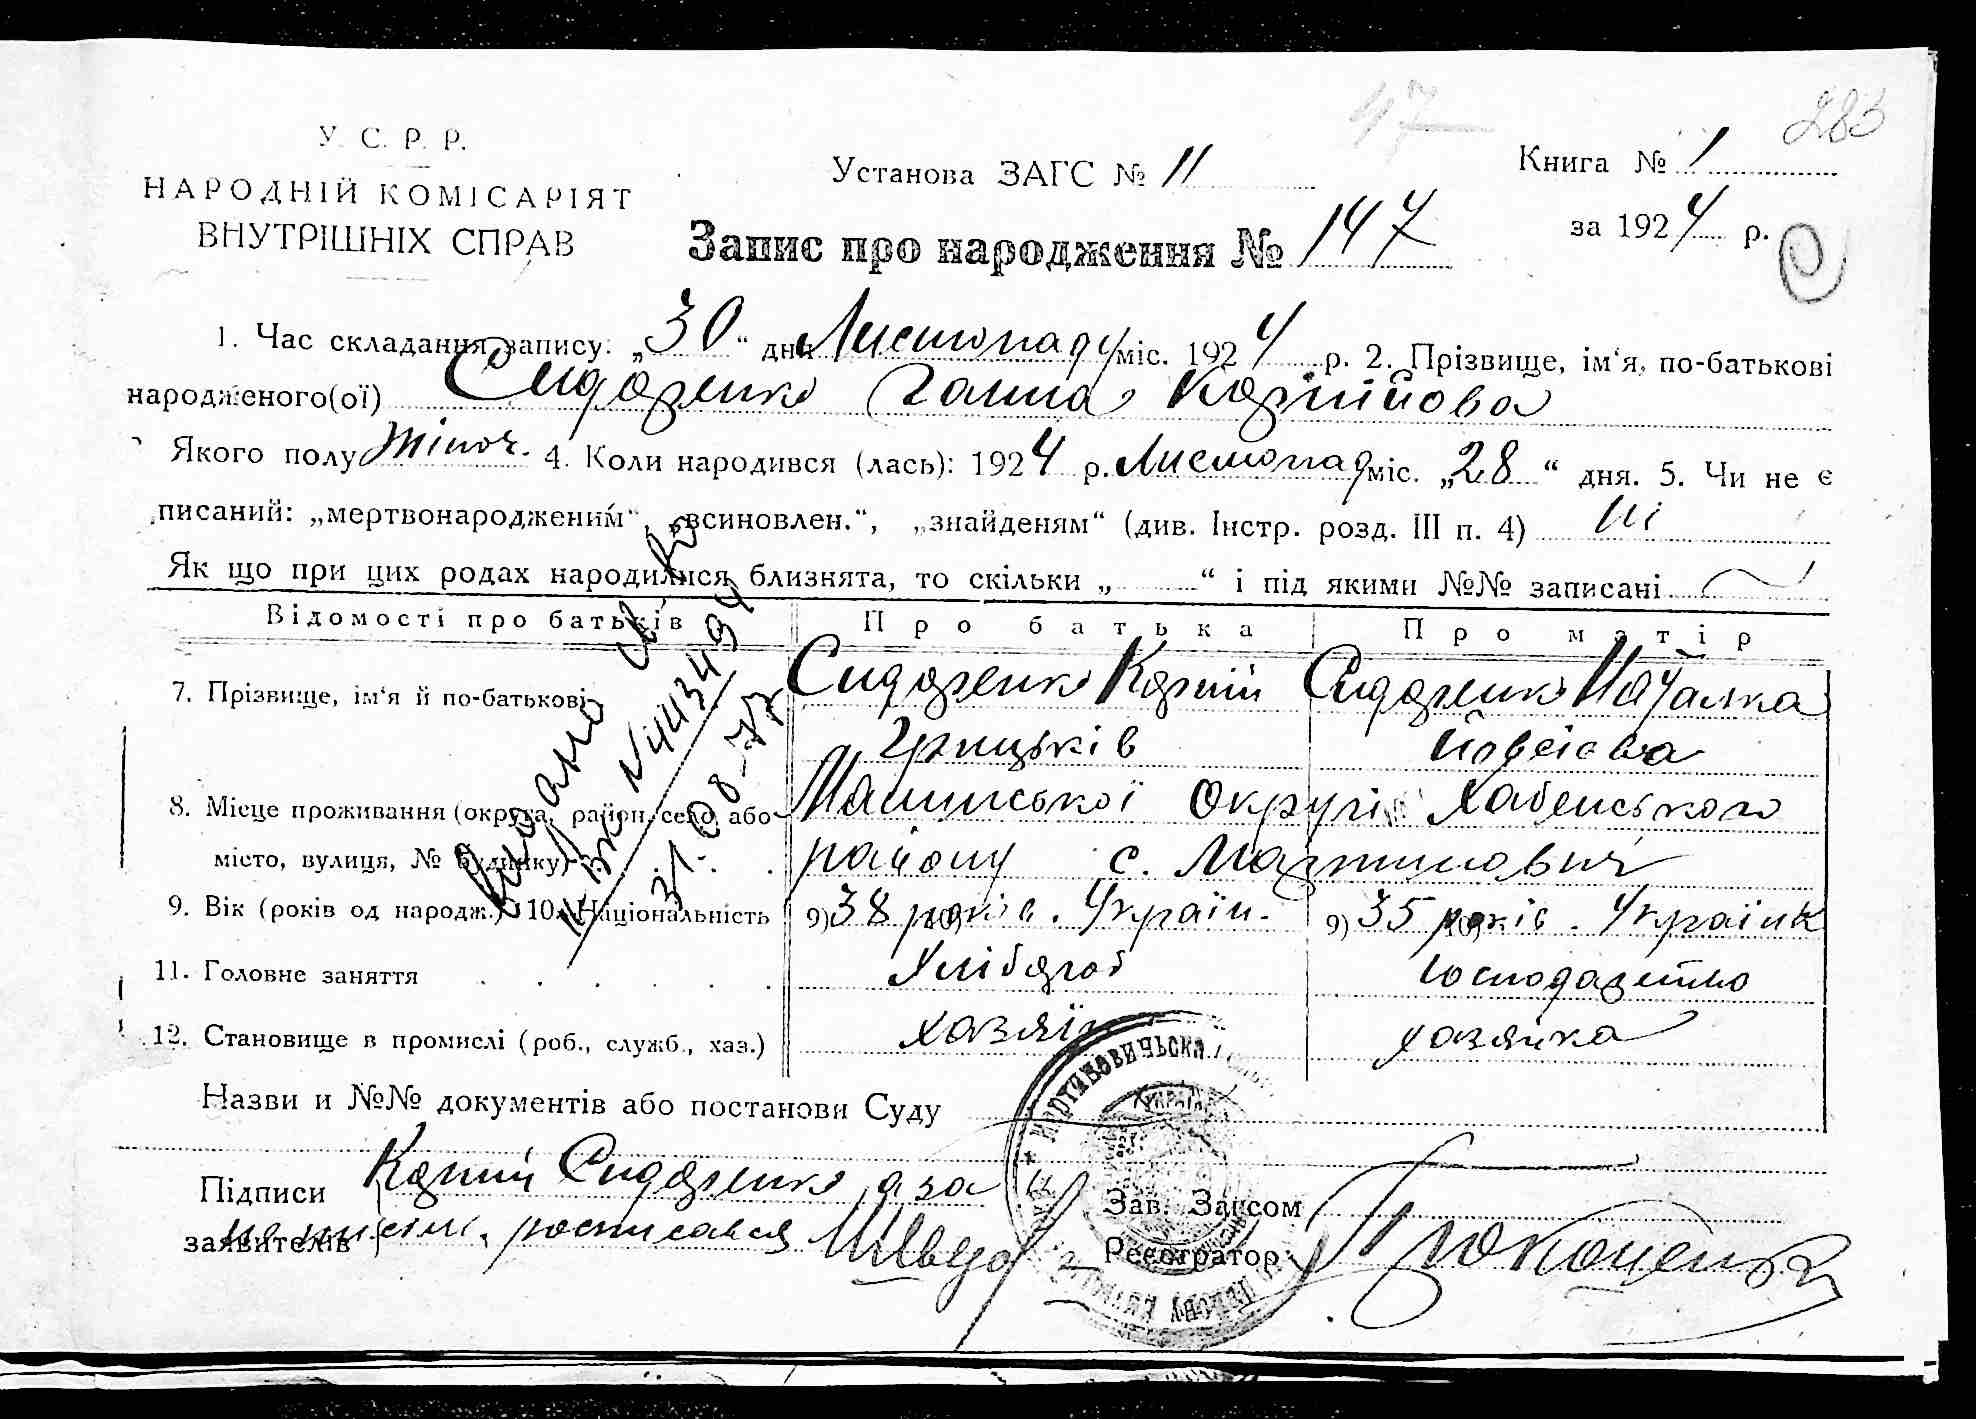 47
283
У. С. Р. Р.
НАРОДНІЙ КОМІСАРІЯТ
ВНУТРІШНІХ СПРАВ
Установа ЗАГС № 11
Книга № 1
за 1924 р.
Запис про народження № 147
1. Час складання запису: „30“ дня Листопаду міс. 1924 р. 2. Прізвище, ім'я, по-батькові
народженого(ої) Сидоренко Ганна Корнійова
Якого полу жіноч. 4. Коли народився (лась): 1924 р. Листопад міс. „28“ дня. 5. Чи не є
писаний: „мертвонародженим“, „всиновлен.“, „знайденям“ (див. Інстр. розд. III п. 4) ні
Як що при цих родах народилися близнята, то скільки „ “ і під якими №№ записані
Відомості про батьків Про батька Про матір
7. Прізвище, ім'я й по-батькові Сидоренко Корній Сидоренко Наталка
Грицьків Йовсієва
8. Місце проживання (округа, район, село, або Малинської округи Хабенського
місто, вулиця, № будинку) району с. Мартинович
9. Вік (років од народж.) 10. Національність 9) 38 років. Україн. 9) 35 років. Українк
11. Головне заняття Хлібороб Господарство
12. Становище в промислі (роб., служб., хаз.) хазяїн хазяйка
Видано
31.08.77
Назви и №№ документів або постанови Суду
Підписи Корній Сидоренко, а за
заявителів росписався
Зав. Загсом
Реєстратор
МАРТИНОВИЧЬСКА